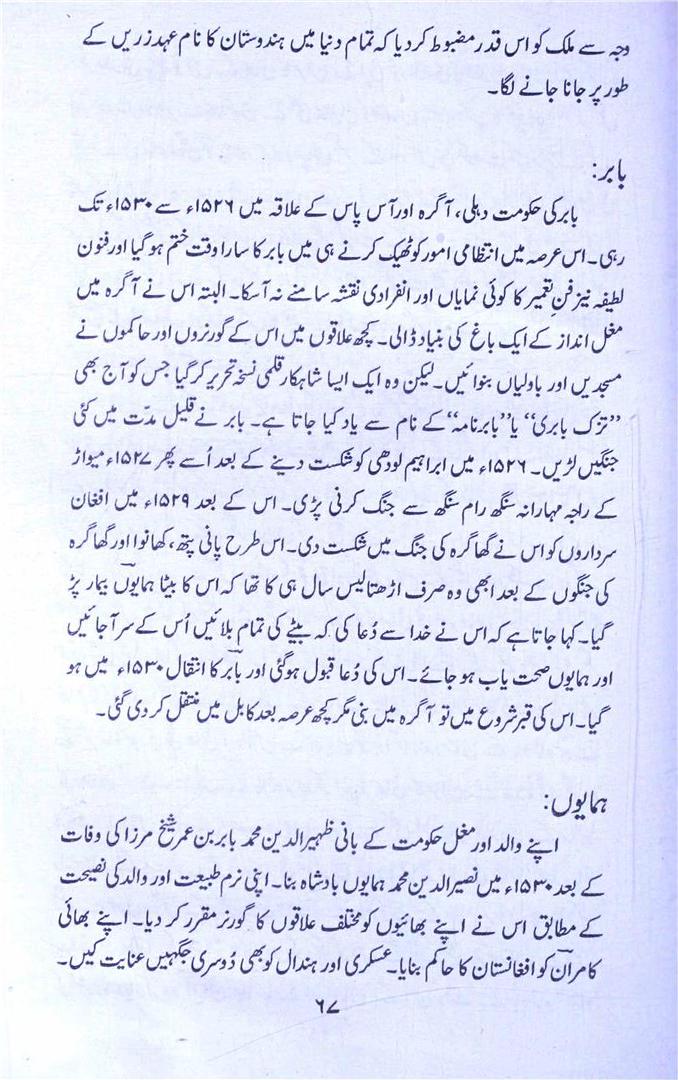 وجہ سے ملک کو اس قدر مضبوط کر دیا کہ تمام دنیا میں ہندوستان کا نام عہد زریں کے
طور پر جانا جانے لگا۔
بابر:
بابر کی حکومت دہلی، آگرہ اور آس پاس کے علاقہ میں ۱۵۲۶ء سے ۱۵۳۰ء تک
رہی۔ اس عرصہ میں انتظامی امور کو ٹھیک کرنے ہی میں بابر کا سارا وقت ختم ہو گیا اور فنون
لطیفہ نیز فنِ تعمیر کا کوئی نمایاں اور انفرادی نقشہ سامنے نہ آسکا۔ البتہ اس نے آگرہ میں
مغل انداز کے ایک باغ کی بنیاد ڈالی۔ کچھ علاقوں میں اس کے گورنروں اور حاکموں نے
مسجدیں اور باولیاں بنوائیں۔ لیکن وہ ایک ایسا شاہکار قلمی نسخہ تحریر کر گیا جس کو آج بھی
’’تزک بابری‘‘ یا ’’بابرنامہ‘‘ کے نام سے یاد کیا جاتا ہے۔ بابر نے قلیل مدّت میں کئی
جنگیں لڑیں۔ ۱۵۲۶ء میں ابراہیم لودھی کو شکست دینے کے بعد اُسے پھر ۱۵۲۷ء میواڑ
کے راجہ مہارانہ سنگھ رام سنگھ سے جنگ کرنی پڑی۔ اس کے بعد ۱۵۲۹ء میں افغان
سرداروں کو اس نے گھاگرہ کی جنگ میں شکست دی۔ اس طرح پانی پتھ، کھانوا اور گھاگرہ
کی جنگوں کے بعد ابھی وہ صرف اڑھتالیس سال ہی کا تھا کہ اس کا بیٹا ہمایوں بیمار پڑ
گیا۔ کہا جاتا ہے کہ اس نے خدا سے دُعا کی کہ بیٹے کی تمام بلائیں اُس کے سر آجائیں
اور ہمایوں صحت یاب ہو جائے۔ اس کی دُعا قبول ہوگئی اور بابر کا انتقال ۱۵۳۰ء میں ہو
گیا۔ اس کی قبر شروع میں تو آگرہ میں بنی مگر کچھ عرصہ بعد کابل میں منتقل کر دی گئی۔
ہمایوں:
اپنے والد اور مغل حکومت کے بانی ظہیرالدین محمد بابر بن عمر شیخ مرزا کی وفات
کے بعد ۱۵۳۰ء میں نصیرالدین محمد ہمایوں بادشاہ بنا۔ اپنی نرم طبیعت اور والد کی نصیحت
کے مطابق اس نے اپنے بھائیوں کو مختلف علاقوں کا گورنر مقرر کر دیا۔ اپنے بھائی
کامران کو افغانستان کا حاکم بنایا۔ عسکری اور ہندال کو بھی دُوسری جگہیں عنایت کیں۔
۶۷